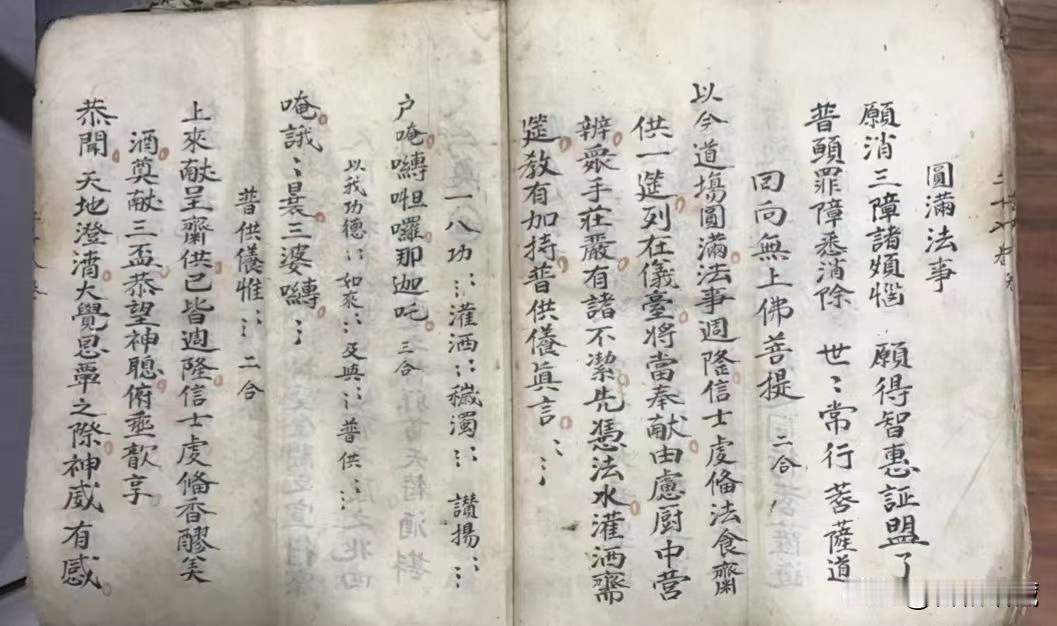 圓滿法事
願消三障諸煩惱 願得智惠証盟了
普願罪障悉消除 世〻常行菩薩道
回向無上佛菩提 二合
以今道塲圓滿法事週隆信士虔俻法食齋
供一筵列在儀臺將當奉献由慮厨中营
辨衆手庄嚴有諸不潔先憑法水灌洒齋
筵教有加持普供養真言
一八功 灌洒 穢濁 讃揚
户唵嚩呾囉那迦吒 三合
以我功德 如來 及與 普供
唵誐〻曩三婆嚩
普供儀惟 二合
上來献呈齋供已皆週隆信士虔俻香醪美
酒奠献三盃恭望神聰俯垂歆享
恭聞天地澄清大覺恩覃之際神威有感